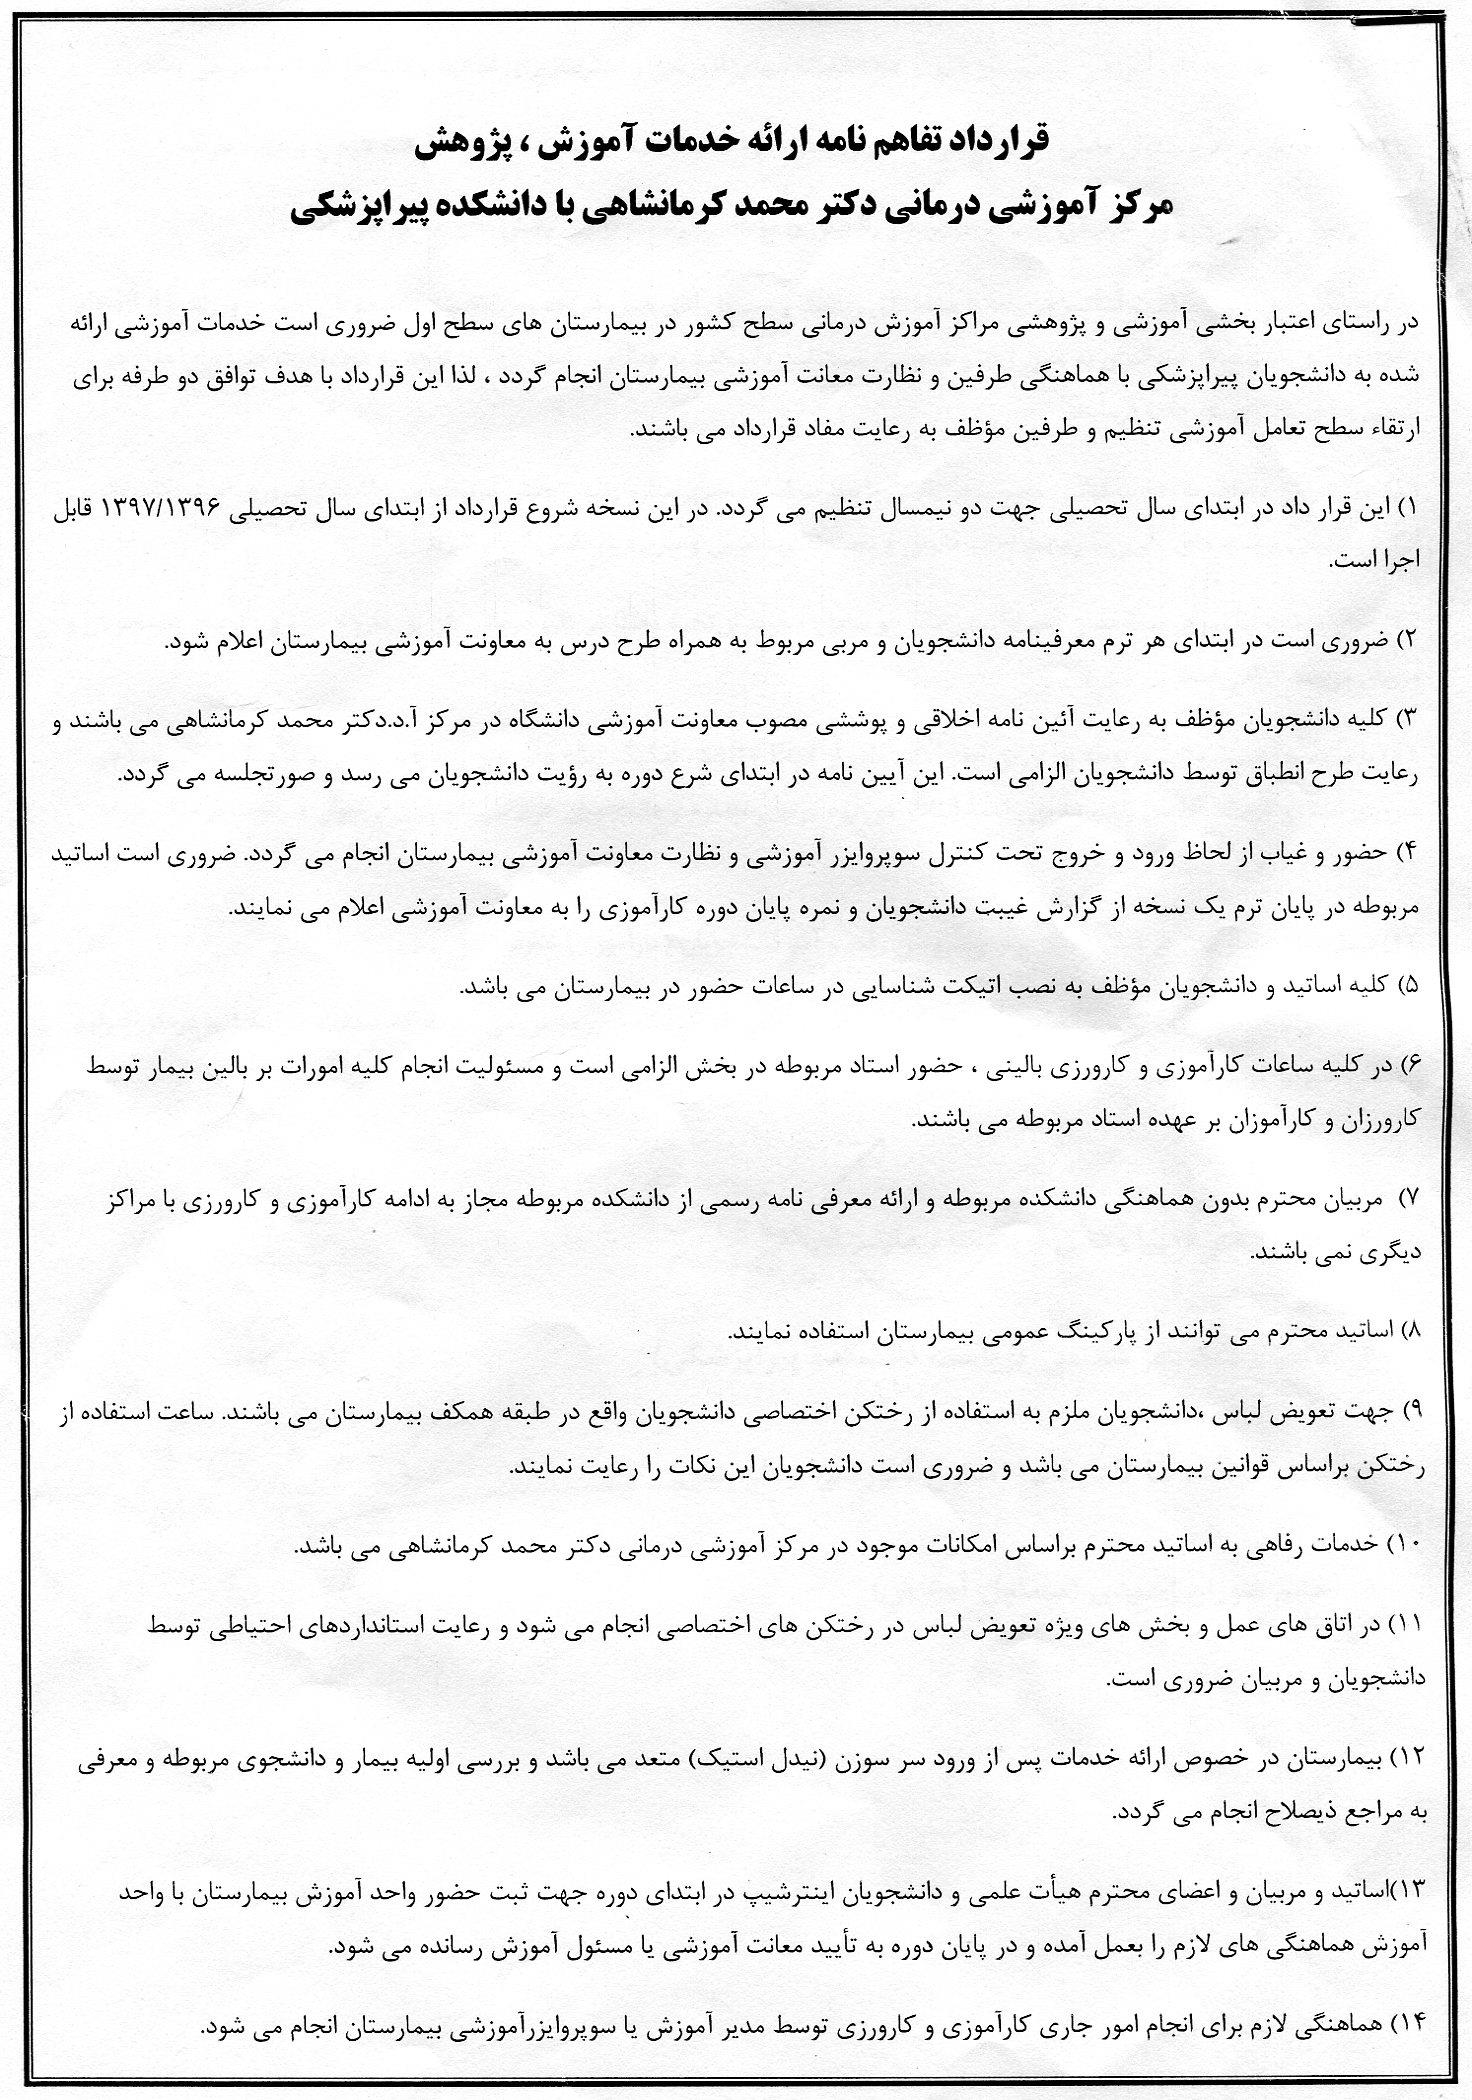 قرارداد تفاهم نامه ارائه خدمات آموزش ، پژوهش
مرکز آموزشی درمانی دکتر محمد کرمانشاهی با دانشکده پیراپزشکی
در راستای اعتبار بخشی آموزشی و پژوهشی مراکز آموزش درمانی سطح کشور در بیمارستان های سطح اول ضروری است خدمات آموزشی ارائه
شده به دانشجویان پیراپزشکی با هماهنگی طرفین و نظارت معانت آموزشی بیمارستان انجام گردد ، لذا این قرارداد با هدف توافق دو طرفه برای
ارتقاء سطح تعامل آموزشی تنظیم و طرفین مؤظف به رعایت مفاد قرارداد می باشند.
۱) این قرار داد در ابتدای سال تحصیلی جهت دو نیمسال تنظیم می گردد. در این نسخه شروع قرارداد از ابتدای سال تحصیلی ۱۳۹۷/۱۳۹۶ قابل
اجرا است.
۲) ضروری است در ابتدای هر ترم معرفینامه دانشجویان و مربی مربوط به همراه طرح درس به معاونت آموزشی بیمارستان اعلام شود.
۳) کلیه دانشجویان مؤظف به رعایت آئین نامه اخلاقی و پوششی مصوب معاونت آموزشی دانشگاه در مرکز آ.د.دکتر محمد کرمانشاهی می باشند و
رعایت طرح انطباق توسط دانشجویان الزامی است. این آیین نامه در ابتدای شرع دوره به رؤیت دانشجویان می رسد و صورتجلسه می گردد.
۴) حضور و غیاب از لحاظ ورود و خروج تحت کنترل سوپروایزر آموزشی و نظارت معاونت آموزشی بیمارستان انجام می گردد. ضروری است اساتید
مربوطه در پایان ترم یک نسخه از گزارش غیبت دانشجویان و نمره پایان دوره کارآموزی را به معاونت آموزشی اعلام می نمایند.
۵) کلیه اساتید و دانشجویان مؤظف به نصب اتیکت شناسایی در ساعات حضور در بیمارستان می باشد.
۶) در کلیه ساعات کارآموزی و کارورزی بالینی ، حضور استاد مربوطه در بخش الزامی است و مسئولیت انجام کلیه امورات بر بالین بیمار توسط
کارورزان و کارآموزان بر عهده استاد مربوطه می باشند.
۷) مربیان محترم بدون هماهنگی دانشکده مربوطه و ارائه معرفی نامه رسمی از دانشکده مربوطه مجاز به ادامه کارآموزی و کارورزی با مراکز
دیگری نمی باشند.
۸) اساتید محترم می توانند از پارکینگ عمومی بیمارستان استفاده نمایند.
۹) جهت تعویض لباس ،دانشجویان ملزم به استفاده از رختکن اختصاصی دانشجویان واقع در طبقه همکف بیمارستان می باشند. ساعت استفاده از
رختکن براساس قوانین بیمارستان می باشد و ضروری است دانشجویان این نکات را رعایت نمایند.
۱۰) خدمات رفاهی به اساتید محترم براساس امکانات موجود در مرکز آموزشی درمانی دکتر محمد کرمانشاهی می باشد.
۱۱) در اتاق های عمل و بخش های ویژه تعویض لباس در رختکن های اختصاصی انجام می شود و رعایت استانداردهای احتیاطی توسط
دانشجویان و مربیان ضروری است.
۱۲) بیمارستان در خصوص ارائه خدمات پس از ورود سر سوزن (نیدل استیک) متعد می باشد و بررسی اولیه بیمار و دانشجوی مربوطه و معرفی
به مراجع ذیصلاح انجام می گردد.
۱۳)اساتید و مربیان و اعضای محترم هیأت علمی و دانشجویان اینترشیپ در ابتدای دوره جهت ثبت حضور واحد آموزش بیمارستان با واحد
آموزش هماهنگی های لازم را بعمل آمده و در پایان دوره به تأیید معانت آموزشی یا مسئول آموزش رسانده می شود.
۱۴) هماهنگی لازم برای انجام امور جاری کارآموزی و کارورزی توسط مدیر آموزش یا سوپروایزرآموزشی بیمارستان انجام می شود.